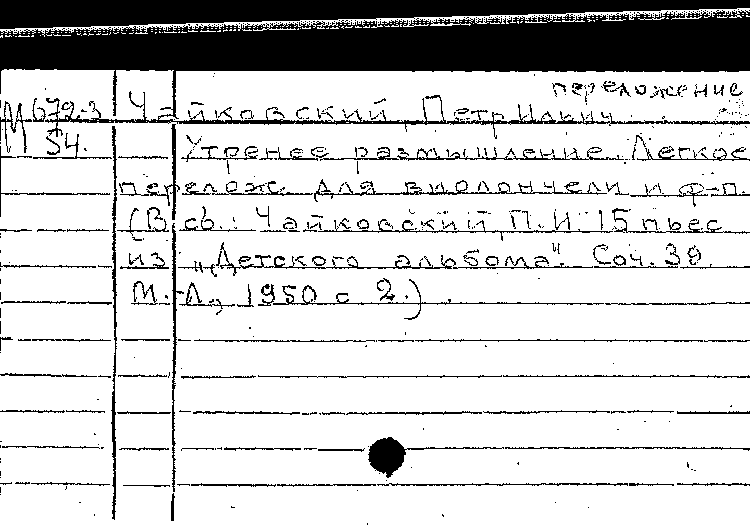 переложение
М 672-3 Чайковский, Петр Ильич
54. Утренее размышление. Легкое
перелож. для виолончели и ф-п.
(В сб.: Чайковский, П.И. 15 пьес
из „Детского альбома". Соч. 39
М.-Л., 1950 с 2.)